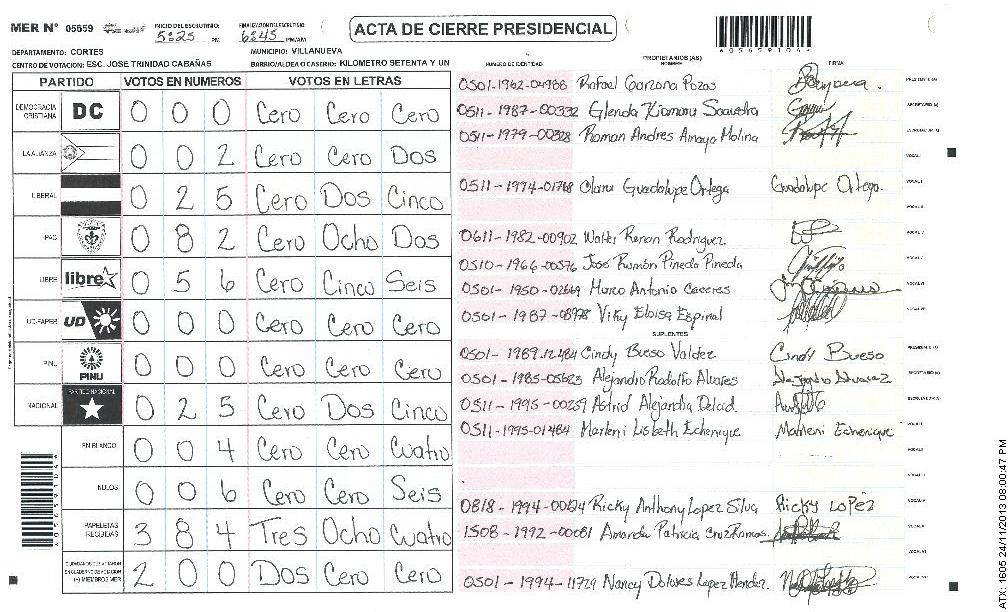 MER N° 05659
INICIO DEL ESCRUTINIO:
5:25 PM
FINALIZACION DEL ESCRUTINIO:
6:45 PM/AM
ACTA DE CIERRE PRESIDENCIAL
DEPARTAMENTO: CORTES
MUNICIPIO: VILLANUEVA
CENTRO DE VOTACION: ESC. JOSE TRINIDAD CABAÑAS
BARRIO/ALDEA O CASERIO: KILOMETRO SETENTA Y UN
PARTIDO VOTOS EN NUMEROS VOTOS EN LETRAS
DEMOCRACIA CRISTIANA DC 0 0 0 Cero Cero Cero
LA ALIANZA 0 0 2 Cero Cero Dos
LIBERAL 0 2 5 Cero Dos Cinco
PAC 0 8 2 Cero Ocho Dos
LIBRE libre 0 5 6 Cero Cinco Seis
UD-FAPER UD 0 0 0 Cero Cero Cero
PINU PINU 0 0 0 Cero Cero Cero
NACIONAL PARTIDO NACIONAL 0 2 5 Cero Dos Cinco
EN BLANCO 0 0 4 Cero Cero Cuatro
NULOS 0 0 6 Cero Cero Seis
PAPELETAS RECIBIDAS 3 8 4 Tres Ocho Cuatro
2 0 0 Dos Cero Cero
PROPIETARIOS (AS)
NUMERO DE IDENTIDAD NOMBRES FIRMA
0501-1962-04988 Rafael Carzona Pozas
0511-1987-00332 Glenda Xiomara Saavedra
0511-1979-00328 Roman Andres Amaya Molina
0511-1994-01768 Clara Guadalupe Ortega Guadalupe Ortega
0611-1982-00902 Walter Renan Rodriguez
0510-1966-00576 Jose Ramón Pineda Pineda
0501-1950-02669 Marco Antonio Caceres
0501-1987-08978 Viky Eloisa Espinal
SUPLENTES
0501-1989-12484 Cindy Bueso Valdez Cindy Bueso
0501-1985-05623 Alejandro Rodolfo Alvares Alejandro Alvarez
0511-1995-00259 Astrid Alejandra Delcid
0511-1995-01484 Marleni Lisbeth Echenique Marleni Echenique
0818-1994-00124 Ricky Anthony Lopez Silva Ricky Lopez
1508-1992-00081 Amanda Patricia Cruz Ramos
0501-1994-11729 Nancy Dolores Lopez Hender.
ATX: 1605 24/11/2013 08:00:47 PM